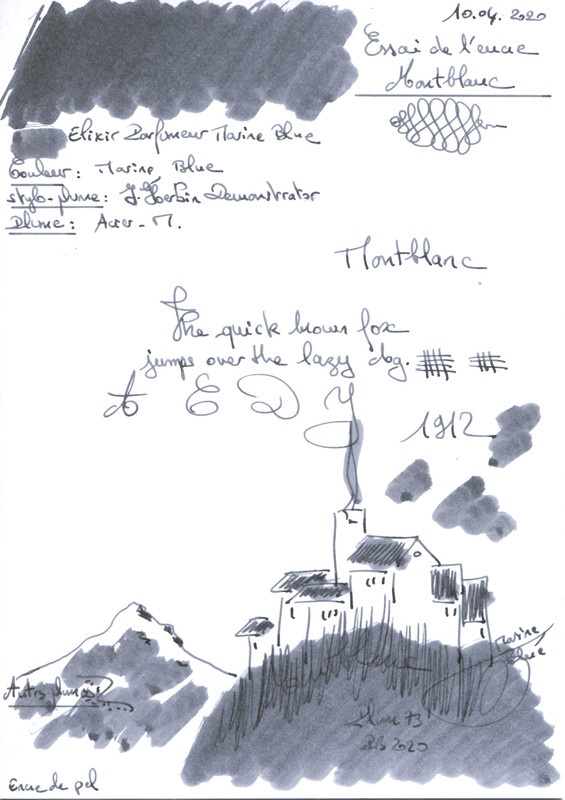 10.04. 2020
Essai de l'encre
Montblanc
Elixir Parfumeur Marine Blue
Couleur: Marine Blue
stylo-plume: J. Herbin Demonstrator
Plume: Acier - M.
Montblanc
The quick brown fox
jumps over the lazy dog.
A E D Y
1912
Marine
Blue
Montblanc
Plum 73
2020